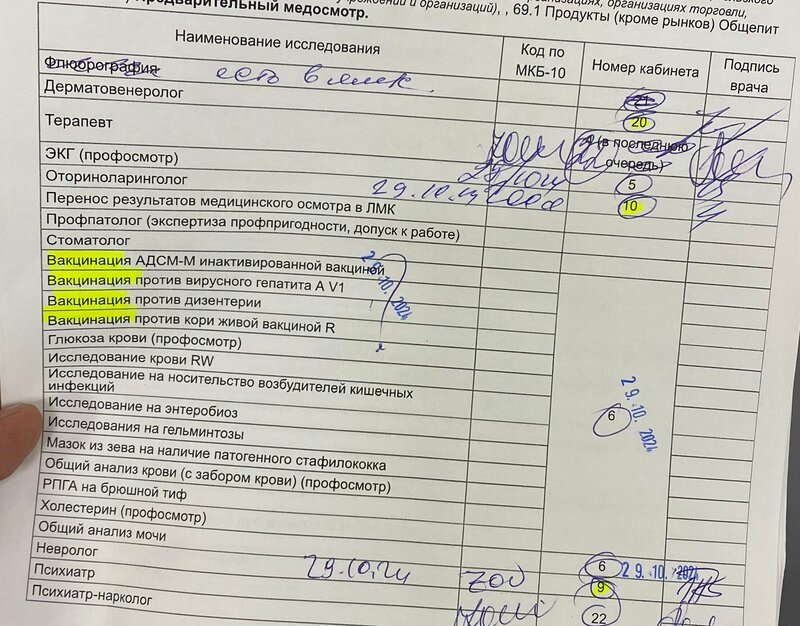 учреждений и организаций), , 69.1 Продукты (кроме рынков) Общепит
организациях, организациях торговли,
Предварительный медосмотр.
Наименование исследования Код по МКБ-10 Номер кабинета Подпись врача
Флюорография есть в лмк.
Дерматовенеролог 21
Терапевт 20
(в последнюю
очередь)
ЭКГ (профосмотр)
Оториноларинголог 5
Перенос результатов медицинского осмотра в ЛМК 29.10.24 10
Профпатолог (экспертиза профпригодности, допуск к работе)
Стоматолог
Вакцинация АДСМ-М инактивированной вакциной
Вакцинация против вирусного гепатита А V1
29.10.2024
Вакцинация против дизентерии
Вакцинация против кори живой вакциной R
Глюкоза крови (профосмотр)
Исследование крови RW
Исследование на носительство возбудителей кишечных
инфекций
29.10.2024
Исследование на энтеробиоз 6
Исследования на гельминтозы
Мазок из зева на наличие патогенного стафилококка
Общий анализ крови (с забором крови) (профосмотр)
РПГА на брюшной тиф
Холестерин (профосмотр)
Общий анализ мочи
Невролог 6 29.10.2024
Психиатр 29.10.24 9
Психиатр-нарколог 22